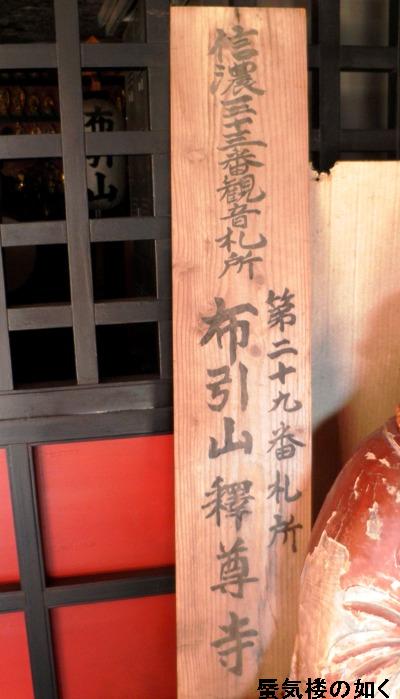 信濃三十三番観音札所
第二十九番札所
布引山釋尊寺
布引山
蜃気楼の如く